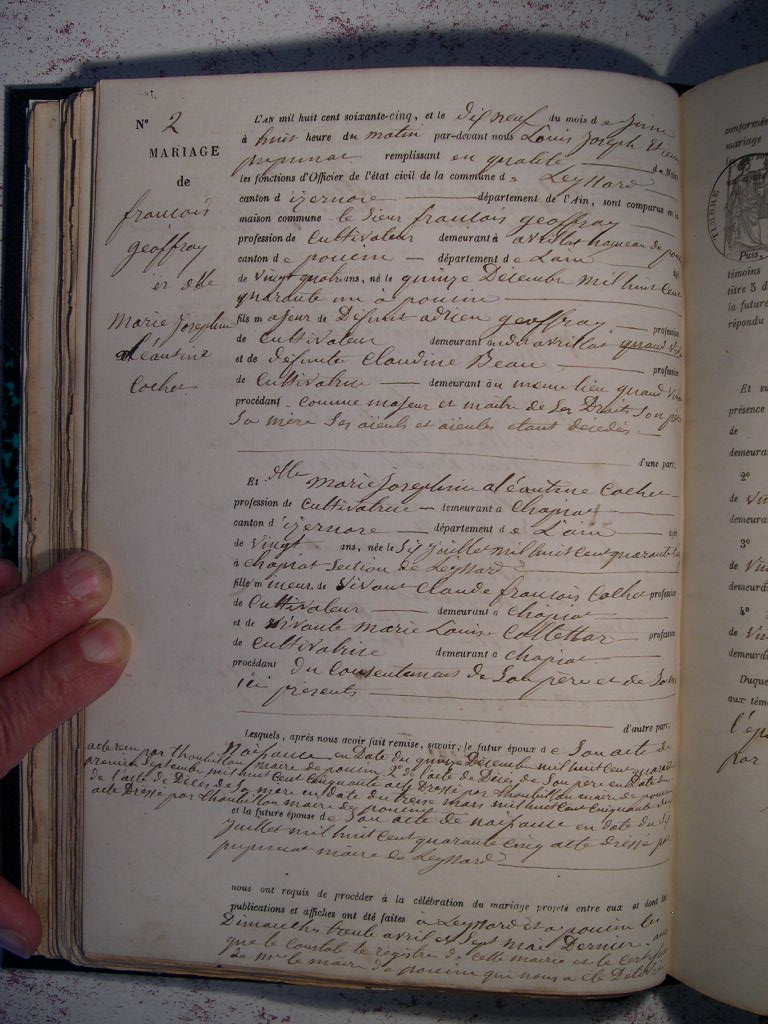 N° 2
MARIAGE
de
francois
geoffray
et dlle
Marie Josephine
aléantine
Cochet
L'AN mil huit cent soixante-cinq, et le dix neuf du mois de Juin
à huit heure du matin par-devant nous Louis Joseph
remplissant en qualité de
les fonctions d'Officier de l'état civil de la commune de Leyssard
canton d'izernore département de l'Ain, sont comparus en la
maison commune le sieur francois geoffray
profession de Cultivateur demeurant à avrillat hameau de
canton de poncin département de L'ain
de vingt quatre ans, né le quinze Décembre mil huit cent
quarante un à poncin
fils majeur de Défunt adrien geoffray profession
de Cultivateur demeurant audit avrillat quand
et de défunte Claudine Beau
de Cultivatrice demeurant au meme lieu quand
procédant comme majeur et maitre de ses Droits, son père
sa mère ses aïeuls et aïeules etant décédés
d'une part.
Et Dlle marie Josephine aléantine Cochet
profession de Cultivatrice demeurant à Chapiat
canton d'izernore département de L'ain
de vingt ans, née le six juillet mil huit cent quarante
à chapiat section de Leyssard
fille mineur de vivant Claude francois Cochet profession
de Cultivateur demeurant à Chapiat
et de vivante marie Louise profession
de Cultivatrice demeurant à chapiat
procédant du Consentement de son père et de sa
ici présents
d'autre part.
Lesquels, après nous avoir fait remise, savoir, le futur époux de son acte de
Naissance en Date du quinze Décembre mil huit cent quarante
acte reçu par thoubillon maire de poncin 2° de l'acte de Décès de son père en date du
premier Septembre mil huit cent cinquante acte Dressé par thoubillon maire de poncin
de l'acte de Décès de sa mère en date du treize mars mil huit cent cinquante
acte Dressé par thoubillon maire de poncin
et la future épouse de son acte de naissance en date du six
juillet mil huit cent quarante cinq acte dressé par
maire de Leyssard
nous ont requis de procéder à la célébration du mariage projeté entre eux et dont les
publications et affiches ont été faites à Leyssard et a poncin les
Dimanches trente avril et sept mai Dernier
que le constate le registre de cette mairie et le certificat
de Mr le maire de poncin qui nous a été
TIMBRE
conformé
mariage
Puis,
témoins
titre 5 d
la future
répondu
Et su
présence
de
demeura
2°
de
demeura
3°
de
demeura
4°
de
demeura
Duque
aux tém
par